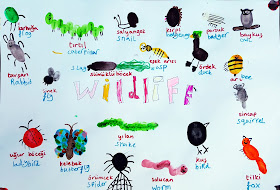 kurbağa
frog
tırtıl
caterpillar
salyangoz
snail
kirpi
hedgehog
porsuk
badger
baykuş
owl
tavşan
Rabbit
slug
sümüklüböcek
eşek arısı
wasp
ördek
duck
arı
bee
sinek
fly
wildlife
sincap
squirrel
uğur böceği
ladybird
kelebek
butterfly
yılan
snake
örümcek
spider
solucan
worm
kuş
bird
tilki
fox